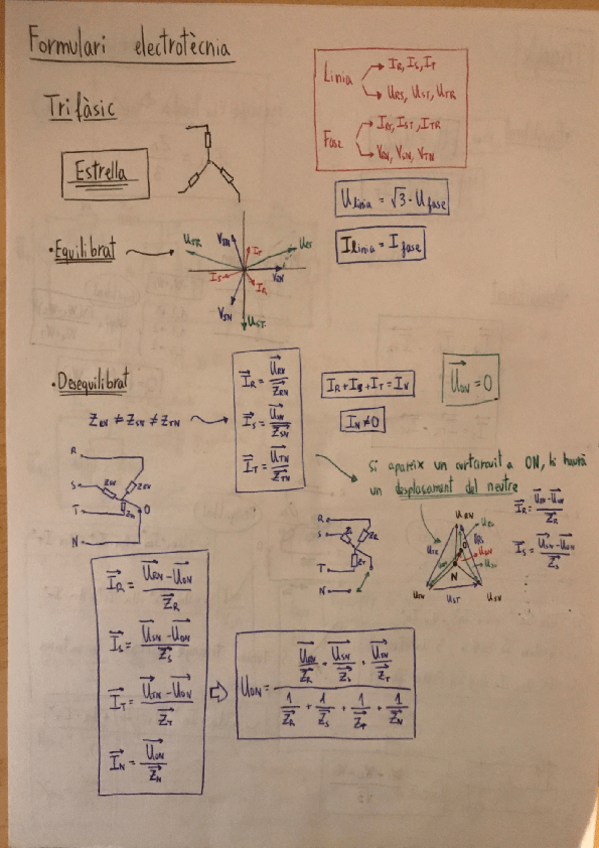 Formulari electrotècnia
Trifàsic
Linia
I_R, I_S, I_T
U_RS, U_ST, U_TR
Fase
I_RS, I_ST, I_TR
V_RN, V_SN, V_TN
Estrella
U linia = √3 · U fase
I linia = I fase
· Equilibrat
U_TR
V_TN
I_T
U_RS
I_S
V_RN
I_R
V_SN
U_ST
· Desequilibrat
Z_RN ≠ Z_SN ≠ Z_TN
I_R = U_RN / Z_RN
I_S = U_SN / Z_SN
I_T = U_TN / Z_TN
I_R + I_S + I_T = I_N
I_N ≠ 0
U_ON = 0
Si apareix un curtcircuit a ON, hi haurà
un desplaçament del neutre
R
S
T
N
Z_RN
O
R
S
T
N
Z_R
Z_T
U_RN
U_TR
U_RS
N
U_TN
U_ST
U_SN
I_R = U_RN - U_ON / Z_R
I_S = U_SN - U_ON / Z_S
I_R = U_RN - U_ON / Z_R
I_S = U_SN - U_ON / Z_S
I_T = U_TN - U_ON / Z_T
I_N = U_ON / Z_N
U_ON = U_RN / Z_R + U_SN / Z_S + U_TN / Z_T
1 / Z_R + 1 / Z_S + 1 / Z_T + 1 / Z_N